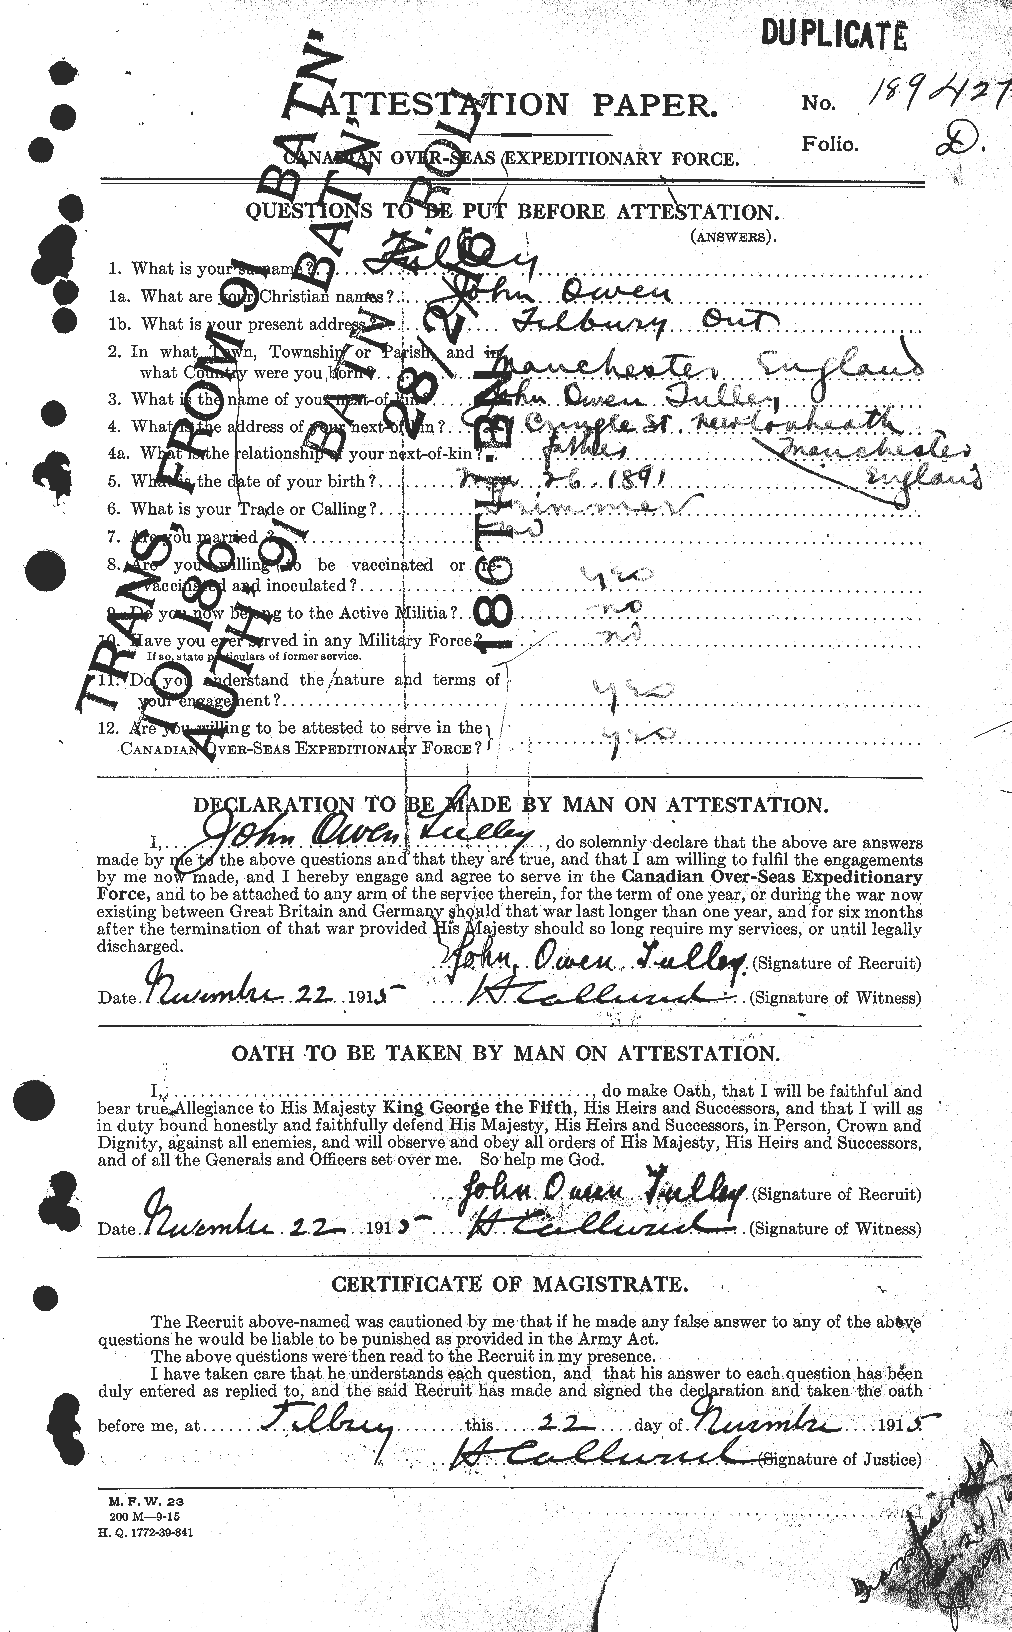 DUPLICATE
ATTESTATION PAPER.
No. 189427
Folio. D.
CANADIAN OVER-SEAS EXPEDITIONARY FORCE.
QUESTIONS TO BE PUT BEFORE ATTESTATION.
(ANSWERS).
1. What is your surname? Tulley
1a. What are your Christian names? John Owen
1b. What is your present address? Tilbury Ont
2. In what Town, Township or Parish, and in
what Country were you born? Manchester England
3. What is the name of your next-of-kin? John Owen Tulley
4. What is the address of your next-of-kin? Cringle St. Newtonheath
4a. What is the relationship of your next-of-kin? father Manchester
England
5. What is the date of your birth? 26 1891
6. What is your Trade or Calling? Trimmer
7. Are you married? no
8. Are you willing to be vaccinated or re-
vaccinated and inoculated? yes
9. Do you now belong to the Active Militia? no
10. Have you ever served in any Military Force? no
If so, state particulars of former service.
11. Do you understand the nature and terms of
your engagement? yes
12. Are you willing to be attested to serve in the
CANADIAN OVER-SEAS EXPEDITIONARY FORCE? yes
TRANS, FROM 91 BATN'
TO 186 BATN'
AUTH, 91 BATN N. ROLL
28/2/16
186TH. BN.
DECLARATION TO BE MADE BY MAN ON ATTESTATION.
I, John Owen Tulley, do solemnly declare that the above are answers
made by me to the above questions and that they are true, and that I am willing to fulfil the engagements
by me now made, and I hereby engage and agree to serve in the Canadian Over-Seas Expeditionary
Force, and to be attached to any arm of the service therein, for the term of one year, or during the war now
existing between Great Britain and Germany should that war last longer than one year, and for six months
after the termination of that war provided His Majesty should so long require my services, or until legally
discharged.
John Owen Tulley (Signature of Recruit)
Date November 22 1915 (Signature of Witness)
OATH TO BE TAKEN BY MAN ON ATTESTATION.
I, , do make Oath, that I will be faithful and
bear true Allegiance to His Majesty King George the Fifth, His Heirs and Successors, and that I will as
in duty bound honestly and faithfully defend His Majesty, His Heirs and Successors, in Person, Crown and
Dignity, against all enemies, and will observe and obey all orders of His Majesty, His Heirs and Successors,
and of all the Generals and Officers set over me. So help me God.
John Owen Tulley (Signature of Recruit)
Date November 22 1915 (Signature of Witness)
CERTIFICATE OF MAGISTRATE.
The Recruit above-named was cautioned by me that if he made any false answer to any of the above
questions he would be liable to be punished as provided in the Army Act.
The above questions were then read to the Recruit in my presence.
I have taken care that he understands each question, and that his answer to each question has been
duly entered as replied to, and the said Recruit has made and signed the declaration and taken the oath
before me, at Tilbury this 22 day of November 1915
(Signature of Justice)
M. F. W. 23
200 M—9-15
H. Q. 1772-39-841